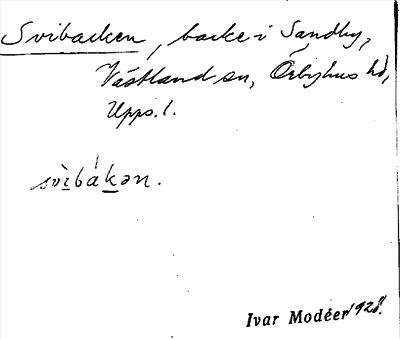 Svibacken, backe i Sandby,
Västland sn, Örbyhus hd,
Upps. l.
svìbákən.
Ivar Modéer 1928.